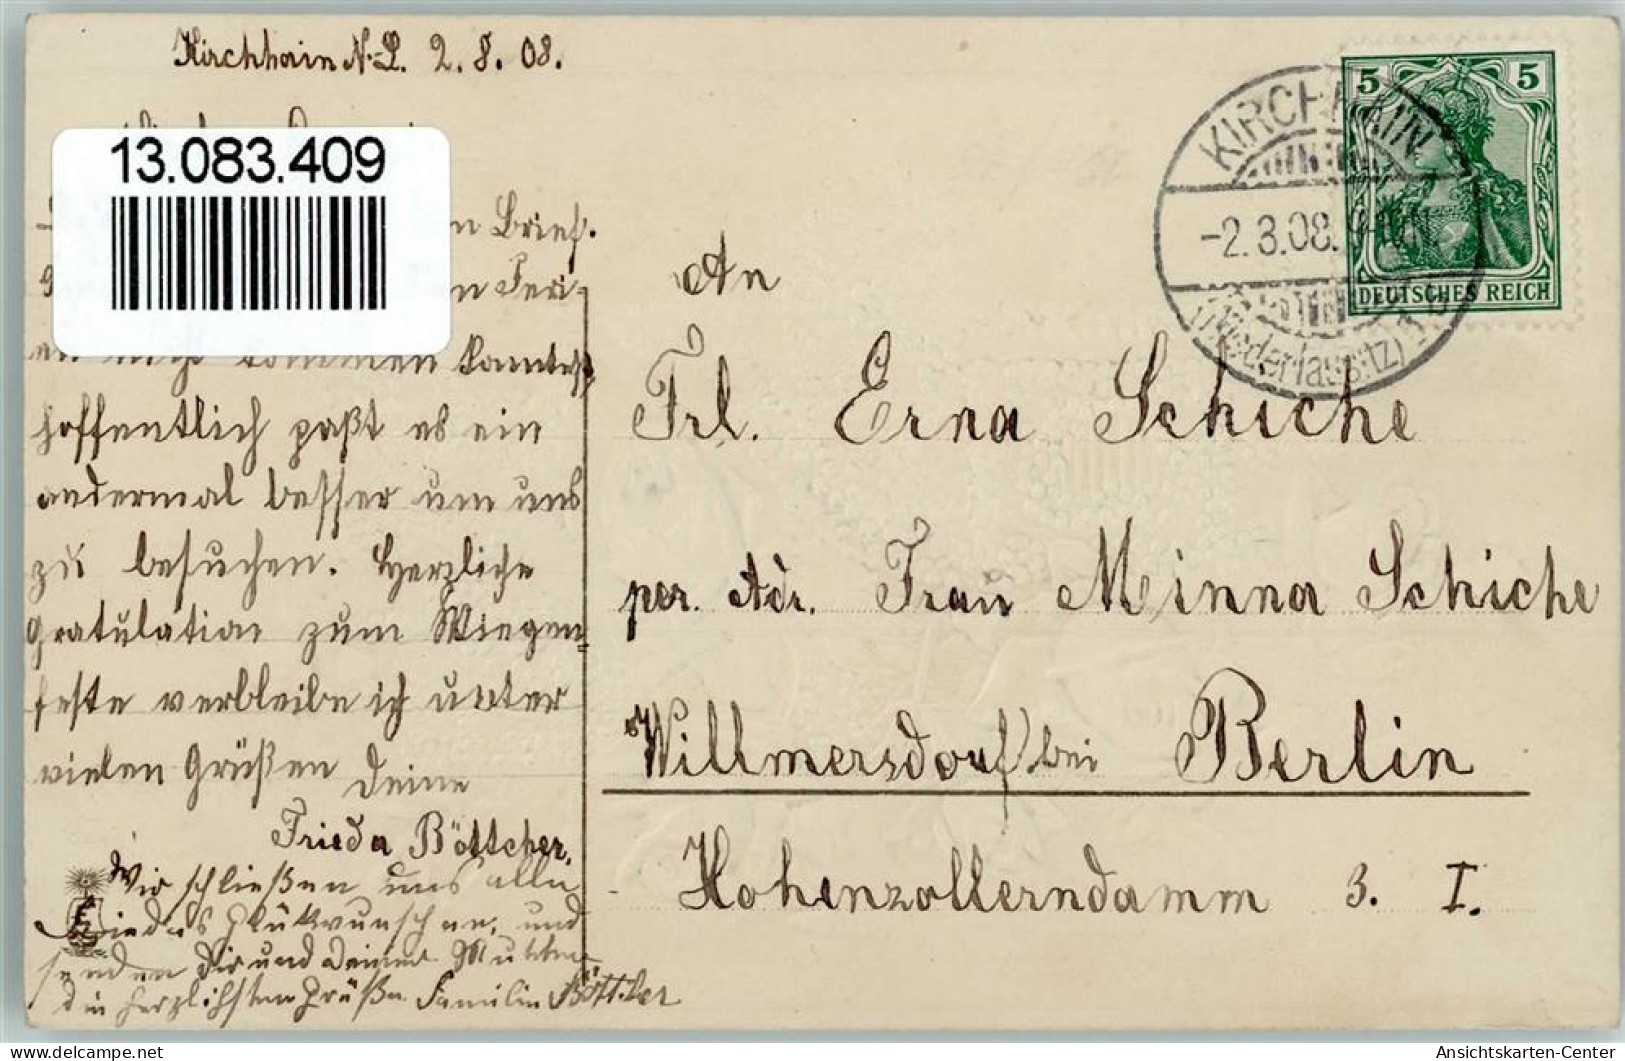 Kirchhain N.-L. 2. 8. 08.
13.083.409
n Brief.
n Feri-
en nicht kommen konntest,
hoffentlich paßt es ein
andermal besser um uns
zu besuchen. Herzliche
Gratulation zum Wiegen=
feste verbleibe ich unter
vielen Grüßen Deine
Frieda Böttcher.
Wir schließen uns alle
Friedas Glückwunsch an, und
senden Dir und Deiner Mutter
die herzlichsten Grüße Familie Böttcher
KIRCHHAIN
-2.3.08.
(Niederlausitz)
5 5
DEUTSCHES REICH
An
Frl. Erna Schiche
per. Adr. Frau Minna Schiche
Willmersdorf bei Berlin
Hohenzollerndamm 3. I.
Ansichtskarten-Center